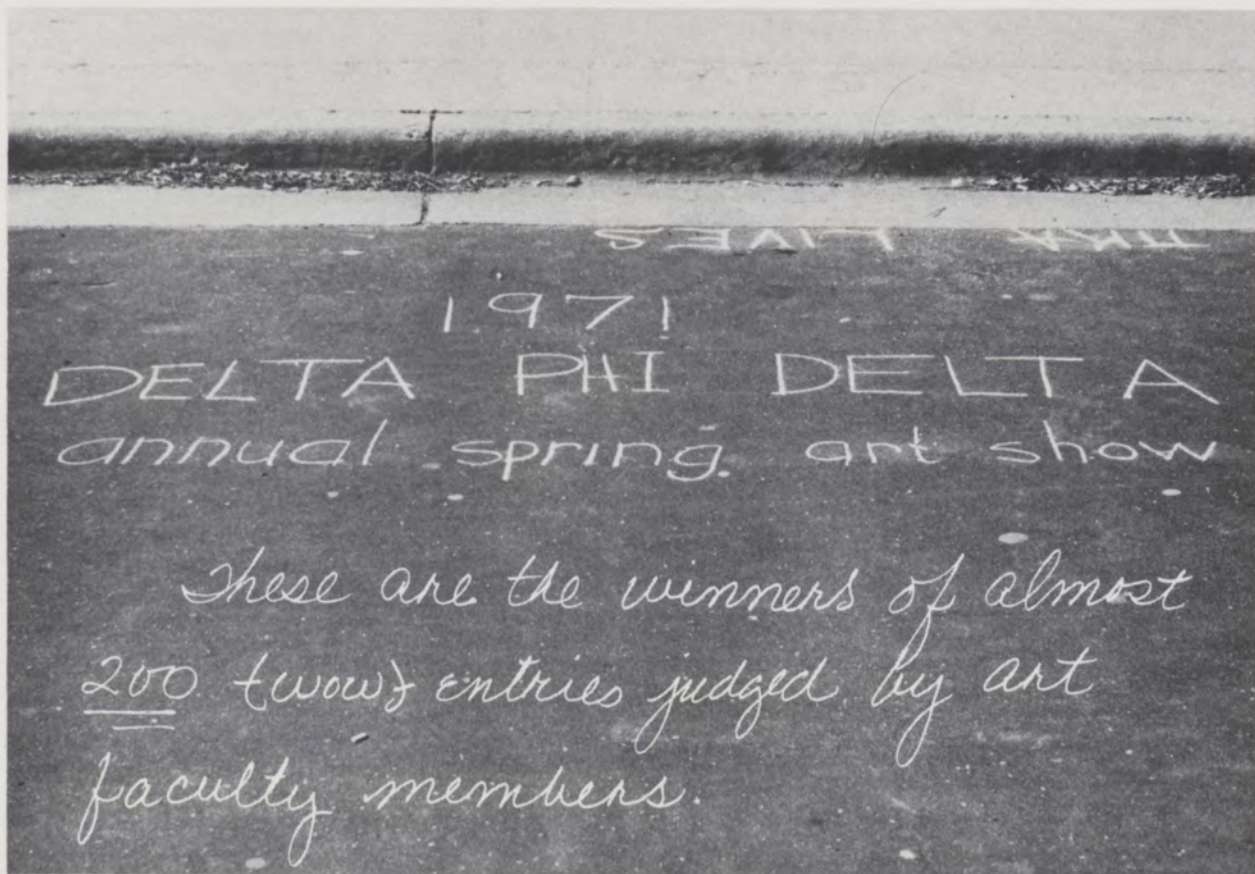 LIVES
1971
DELTA PHI DELTA
annual spring art show
These are the winners of almost
200 {wow} entries judged by art
faculty members.